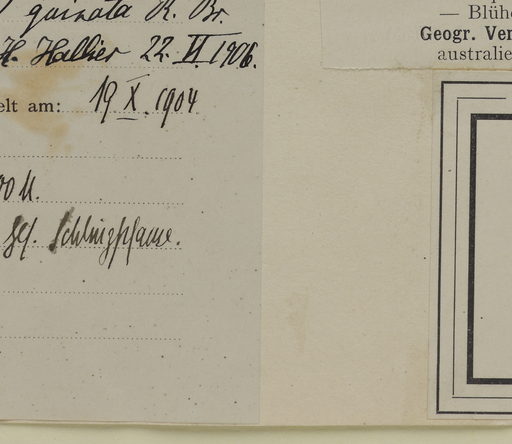 quinata R. Br.
H. Hallier 22. VI. 1906.
elt am: 19 X. 1904
00 M.
Schlingpflanze.
— Blühe
Geogr. Ver
australie